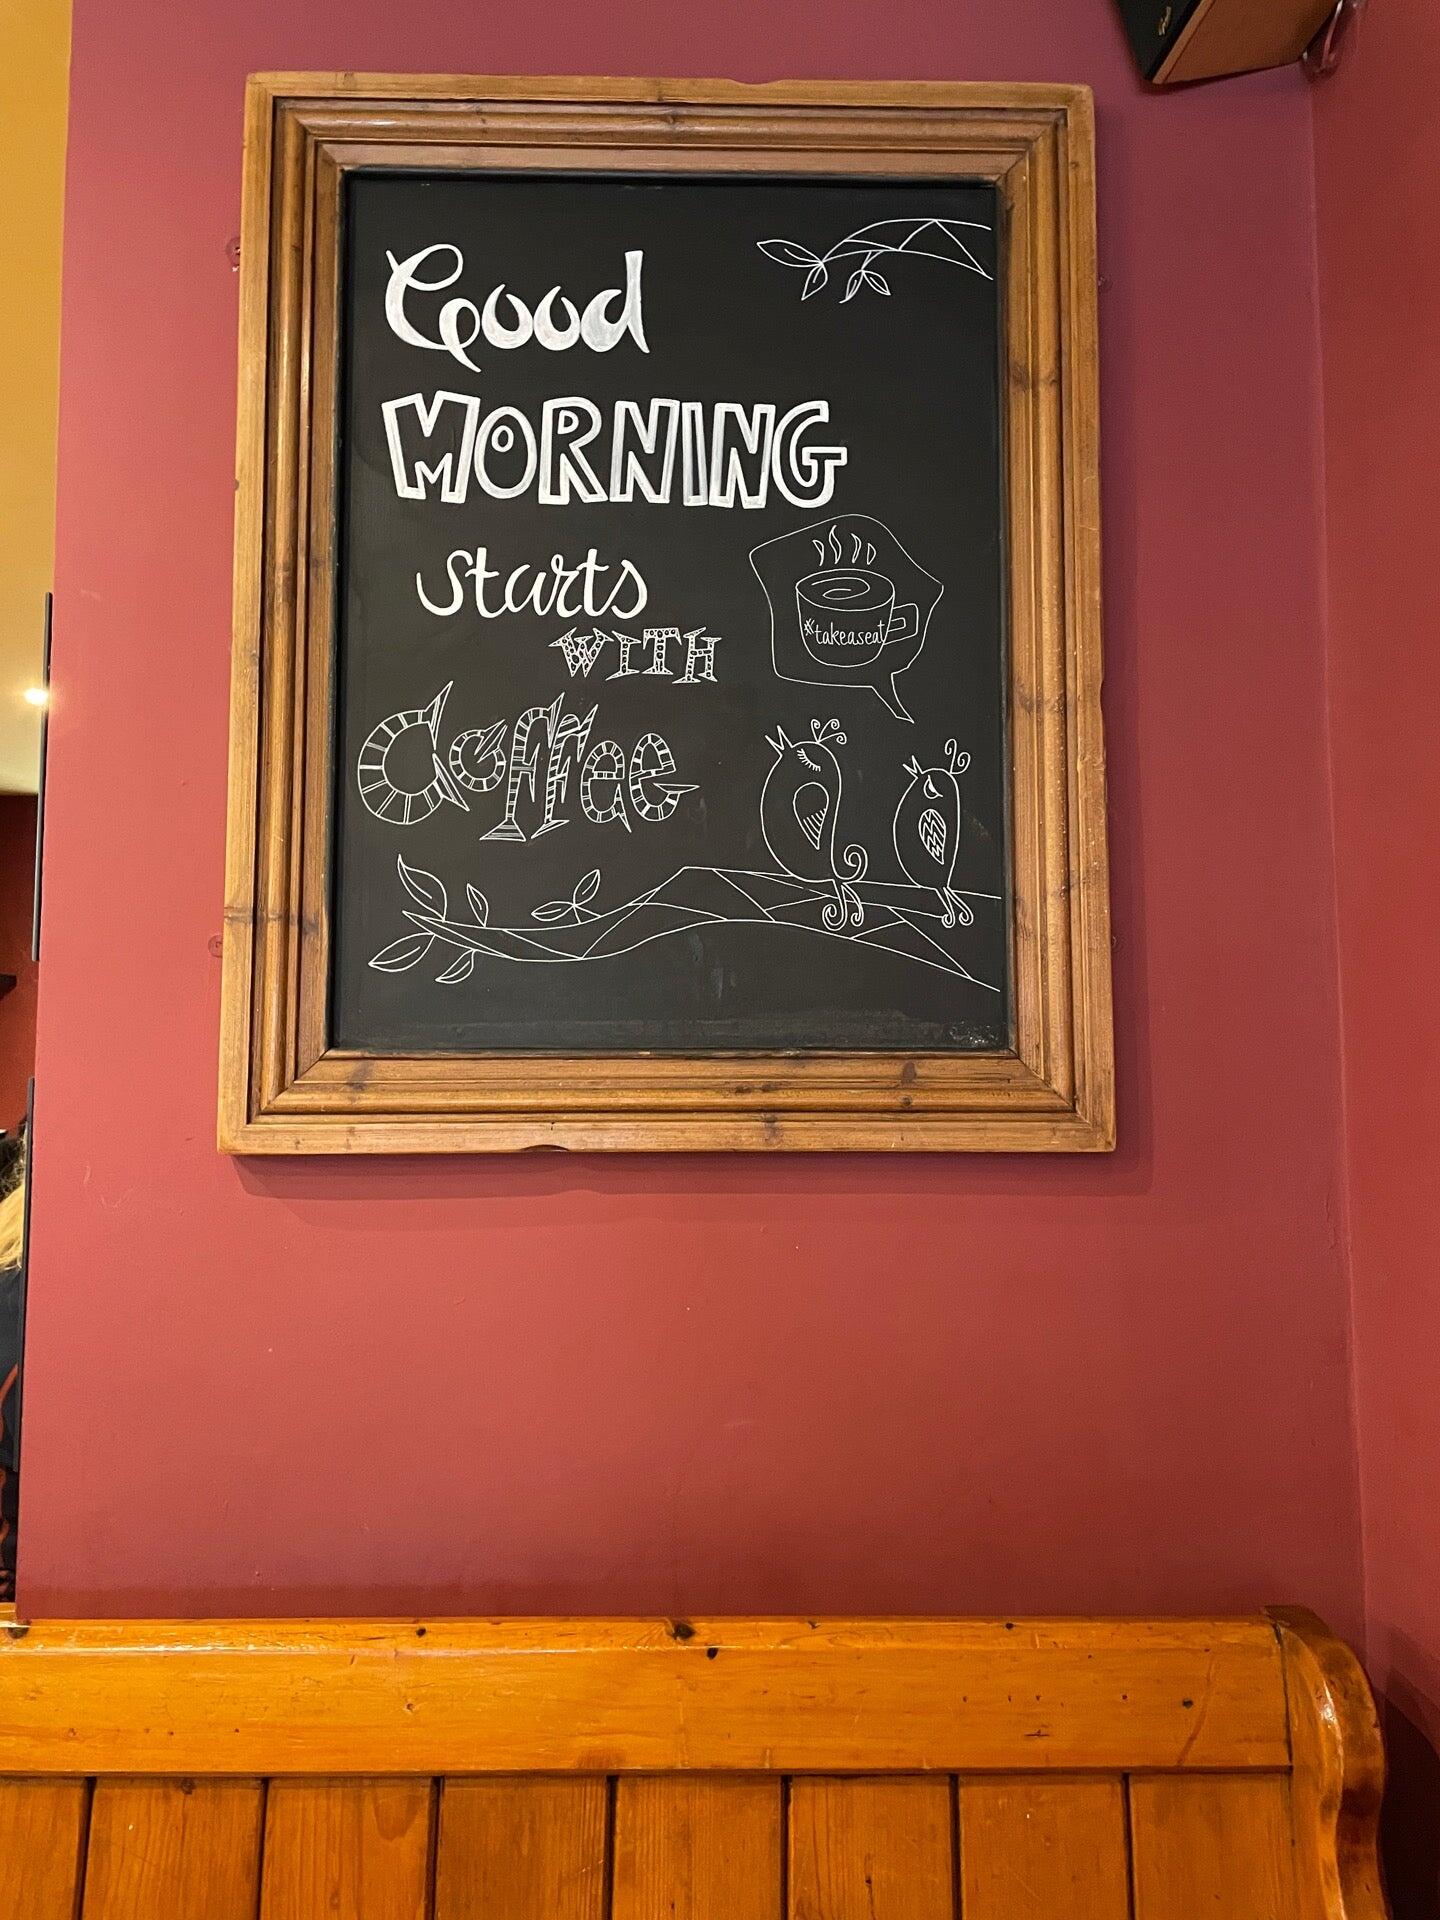 Good
MORNING
starts
WITH
Coffee
#takeaseat